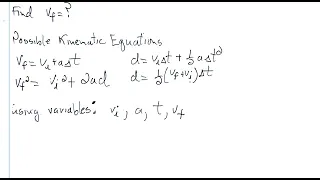 Find v_f = ?
Possible Kinematic Equations
v_f = v_i + aΔt d = v_iΔt + ½aΔt²
v_f² = v_i² + 2ad d = ½(v_f + v_i)Δt
using variables: v_i, a, t, v_f